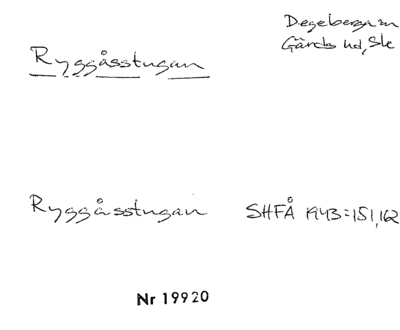 Degeberga sn
Gärds hd, Sk
Ryggåsstugan
Ryggåsstugan SHFÅ 1943:151,162
Nr 19920